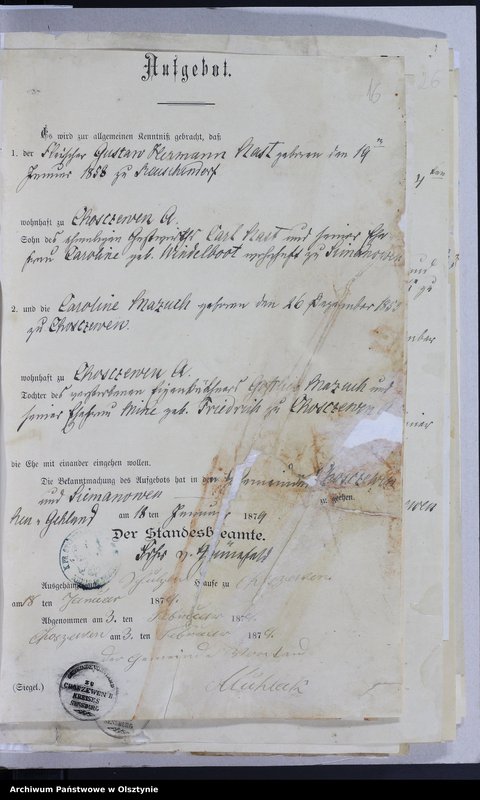 Aufgebot.
16
26
Es wird zur allgemeinen Kenntniß gebracht, daß
1. der Fleischer Gustav Hermann Nast geboren den 19
Januar 1853 zu Reuschendorf
wohnhaft zu Choszewen A.
Sohn des ehemaligen Gastwirths Carl Nast und seiner Ehe
frau Caroline geb. Windelboot wohnhaft zu Simanowen
2. und die Caroline Mazuch geboren den 26 Dezember 1853
zu Choszewen.
wohnhaft zu Choszewen A.
Tochter des verstorbenen Eigenkäthners Mazuch und
seiner Ehefrau Mine geb. Friedrich zu Choszewen
die Ehe mit einander eingehen wollen.
Die Bekanntmachung des Aufgebots hat in den Gemeinden Choszewen
und Simanowen zu geschehen.
am 18 ten Januar 1879
Der Standesbeamte.
Ausgehängt Hause zu Choszewen
am 18 ten Januar 1879.
Abgenommen am 3. ten Februar 187
Choszewen am 3. ten Februar 1879.
Der Gemeinde Vorstand
(Siegel.)
ZU
CHOSZEWEN
KREISES
SENSBURG
Archiwum Państwowe w Olsztynie